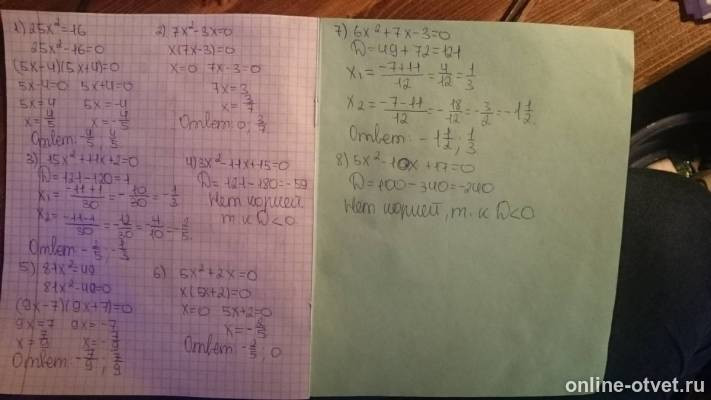 1) 25x²=16
25x²-16=0
(5x-4)(5x+4)=0
5x-4=0 5x+4=0
5x=4 5x=-4
x=4/5 x=-4/5
Ответ: -4/5; 4/5
2) 7x²-3x=0
x(7x-3)=0
x=0 7x-3=0
7x=3
x=3/7
Ответ: 0; 3/7
3) 15x²+11x+2=0
D=121-120=1
x₁=(-11+1)/30=-10/30=-1/3
x₂=(-11-1)/30=-12/30=-4/10=-2/5
Ответ: -2/5; -1/3
4) 3x²-11x+15=0
D=121-180=-59
Нет корней
т.к D<0
5) 81x²=49
81x²-49=0
(9x-7)(9x+7)=0
9x=7 9x=-7
x=7/9 x=-7/9
Ответ: -7/9; 7/9
6) 5x²+2x=0
x(5x+2)=0
x=0 5x+2=0
x=-2/5
Ответ: -2/5; 0
7) 6x²+7x-3=0
D=49+72=121
x₁=(-7+11)/12=4/12=1/3
x₂=(-7-11)/12=-18/12=-3/2=-1 1/2
Ответ: -1 1/2; 1/3
8) 5x²-10x+17=0
D=100-340=-240
Нет корней, т.к D<0
online-otvet.ru